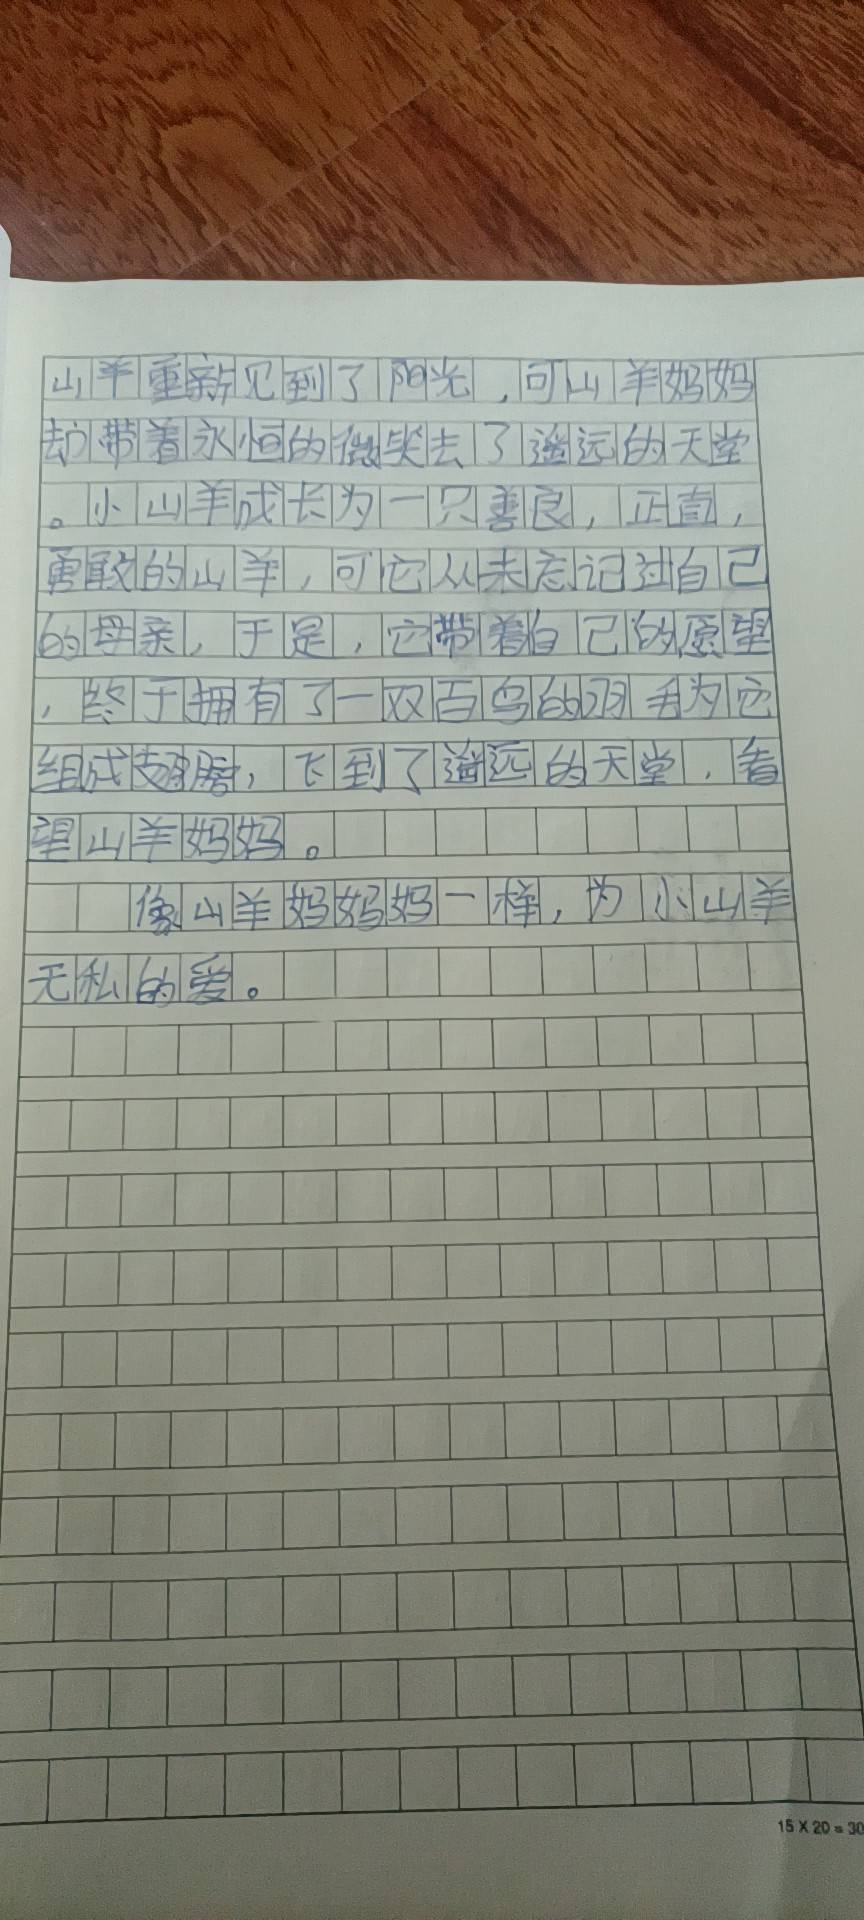 山羊重新见到了阳光,可山羊妈妈
却带着永恒的微笑去了遥远的天堂
。小山羊成长为一只善良,正直,
勇敢的山羊,可它从未忘记过自己
的母亲,于是,它带着自己的愿望
,终于拥有了一双百鸟的羽毛为它
组成翅膀,飞到了遥远的天堂,看
望山羊妈妈。
像山羊妈妈妈一样,为小山羊
无私的爱。
15 X 20 = 30